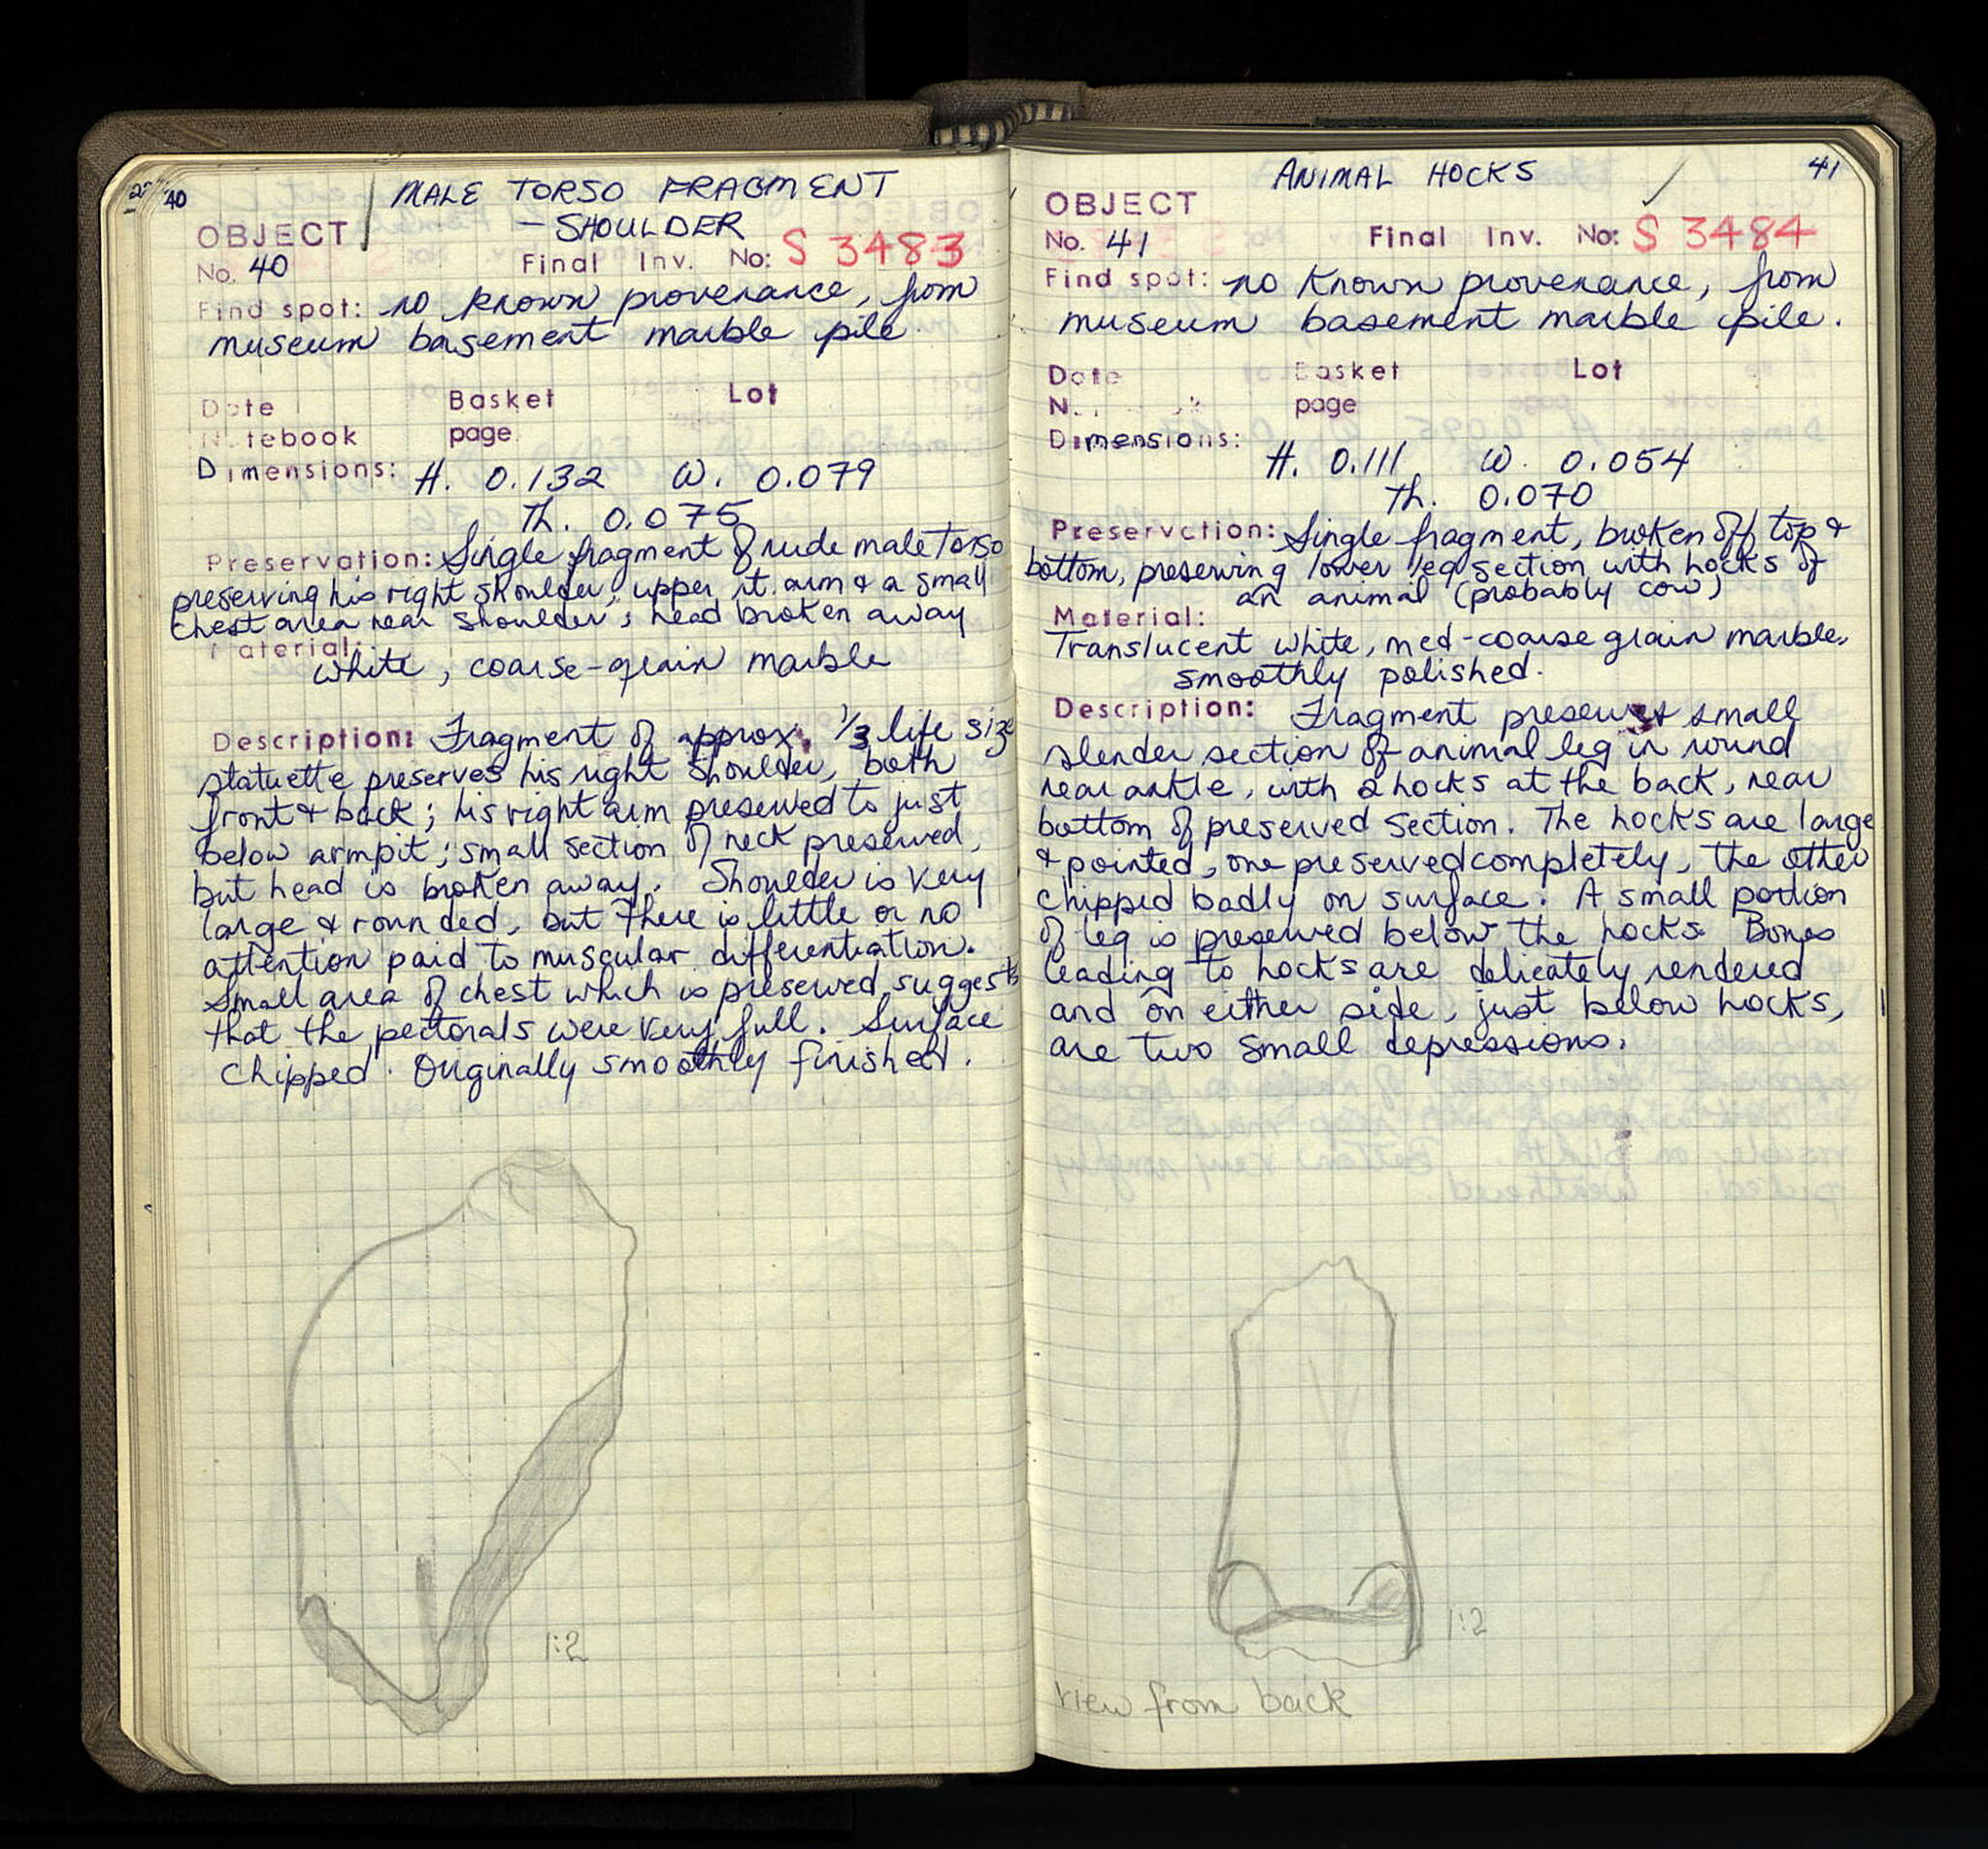 40
MALE TORSO FRAGMENT
- SHOULDER
OBJECT
No. 40 Final Inv. No: S 3483
Find spot: no known provenance, from
museum basement marble pile.
Date Basket Lot
Notebook page
Dimensions: H. 0.132 W. 0.079
Th. 0.075
Preservation: Single fragment of nude male torso
preserving his right shoulder, upper rt. arm & a small
chest area near shoulder; head broken away
Material:
white, coarse-grain marble
Description: Fragment of approx. 1/3 life size
statuette preserves his right shoulder, both
front & back; his right arm preserved to just
below armpit; small section of neck preserved,
but head is broken away. Shoulder is very
large & rounded, but there is little or no
attention paid to muscular differentiation.
Small area of chest which is preserved suggests
that the pectorals were very full. Surface
chipped. Originally smoothly finished.
1:2
41
ANIMAL HOCKS
OBJECT
No. 41 Final Inv. No: S 3484
Find spot: no known provenance, from
museum basement marble pile.
Date Basket Lot
page
Dimensions:
H. 0.111 W. 0.054
Th. 0.070
Preservation: Single fragment, broken off top &
bottom, preserving lower leg section with hocks of
an animal (probably cow)
Material:
Translucent white, med-coarse grain marble,
smoothly polished.
Description: Fragment preserves small
slender section of animal leg in round
near ankle, with 2 hocks at the back, near
bottom of preserved section. The hocks are large
& pointed, one preserved completely, the other
chipped badly on surface. A small portion
of leg is preserved below the hocks. Bones
leading to hocks are delicately rendered
and on either side, just below hocks,
are two small depressions.
1:2
view from back